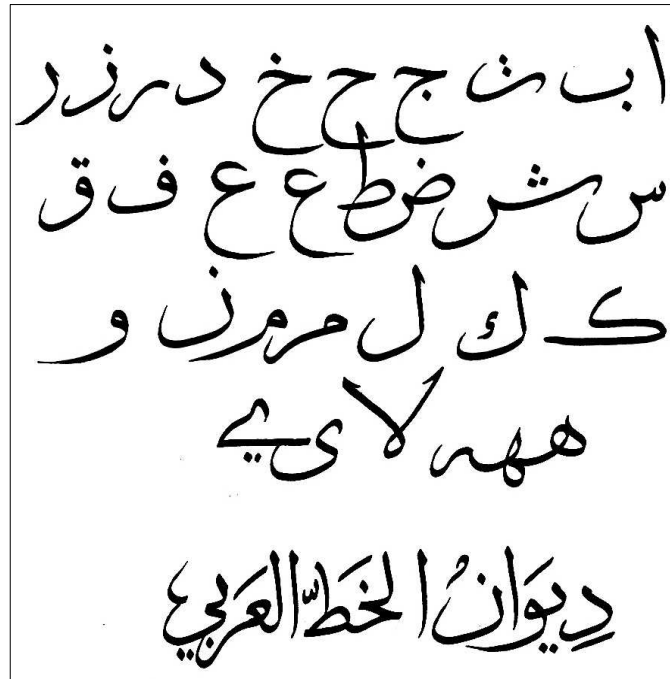 ا ب ث ج ح خ د ر ز ر
س ش ض ط ع ع ف ق
ک ك ل م م ن و
ه ه ه لا ي ي
دِيوَانُ الخَطِّ العَرَبي